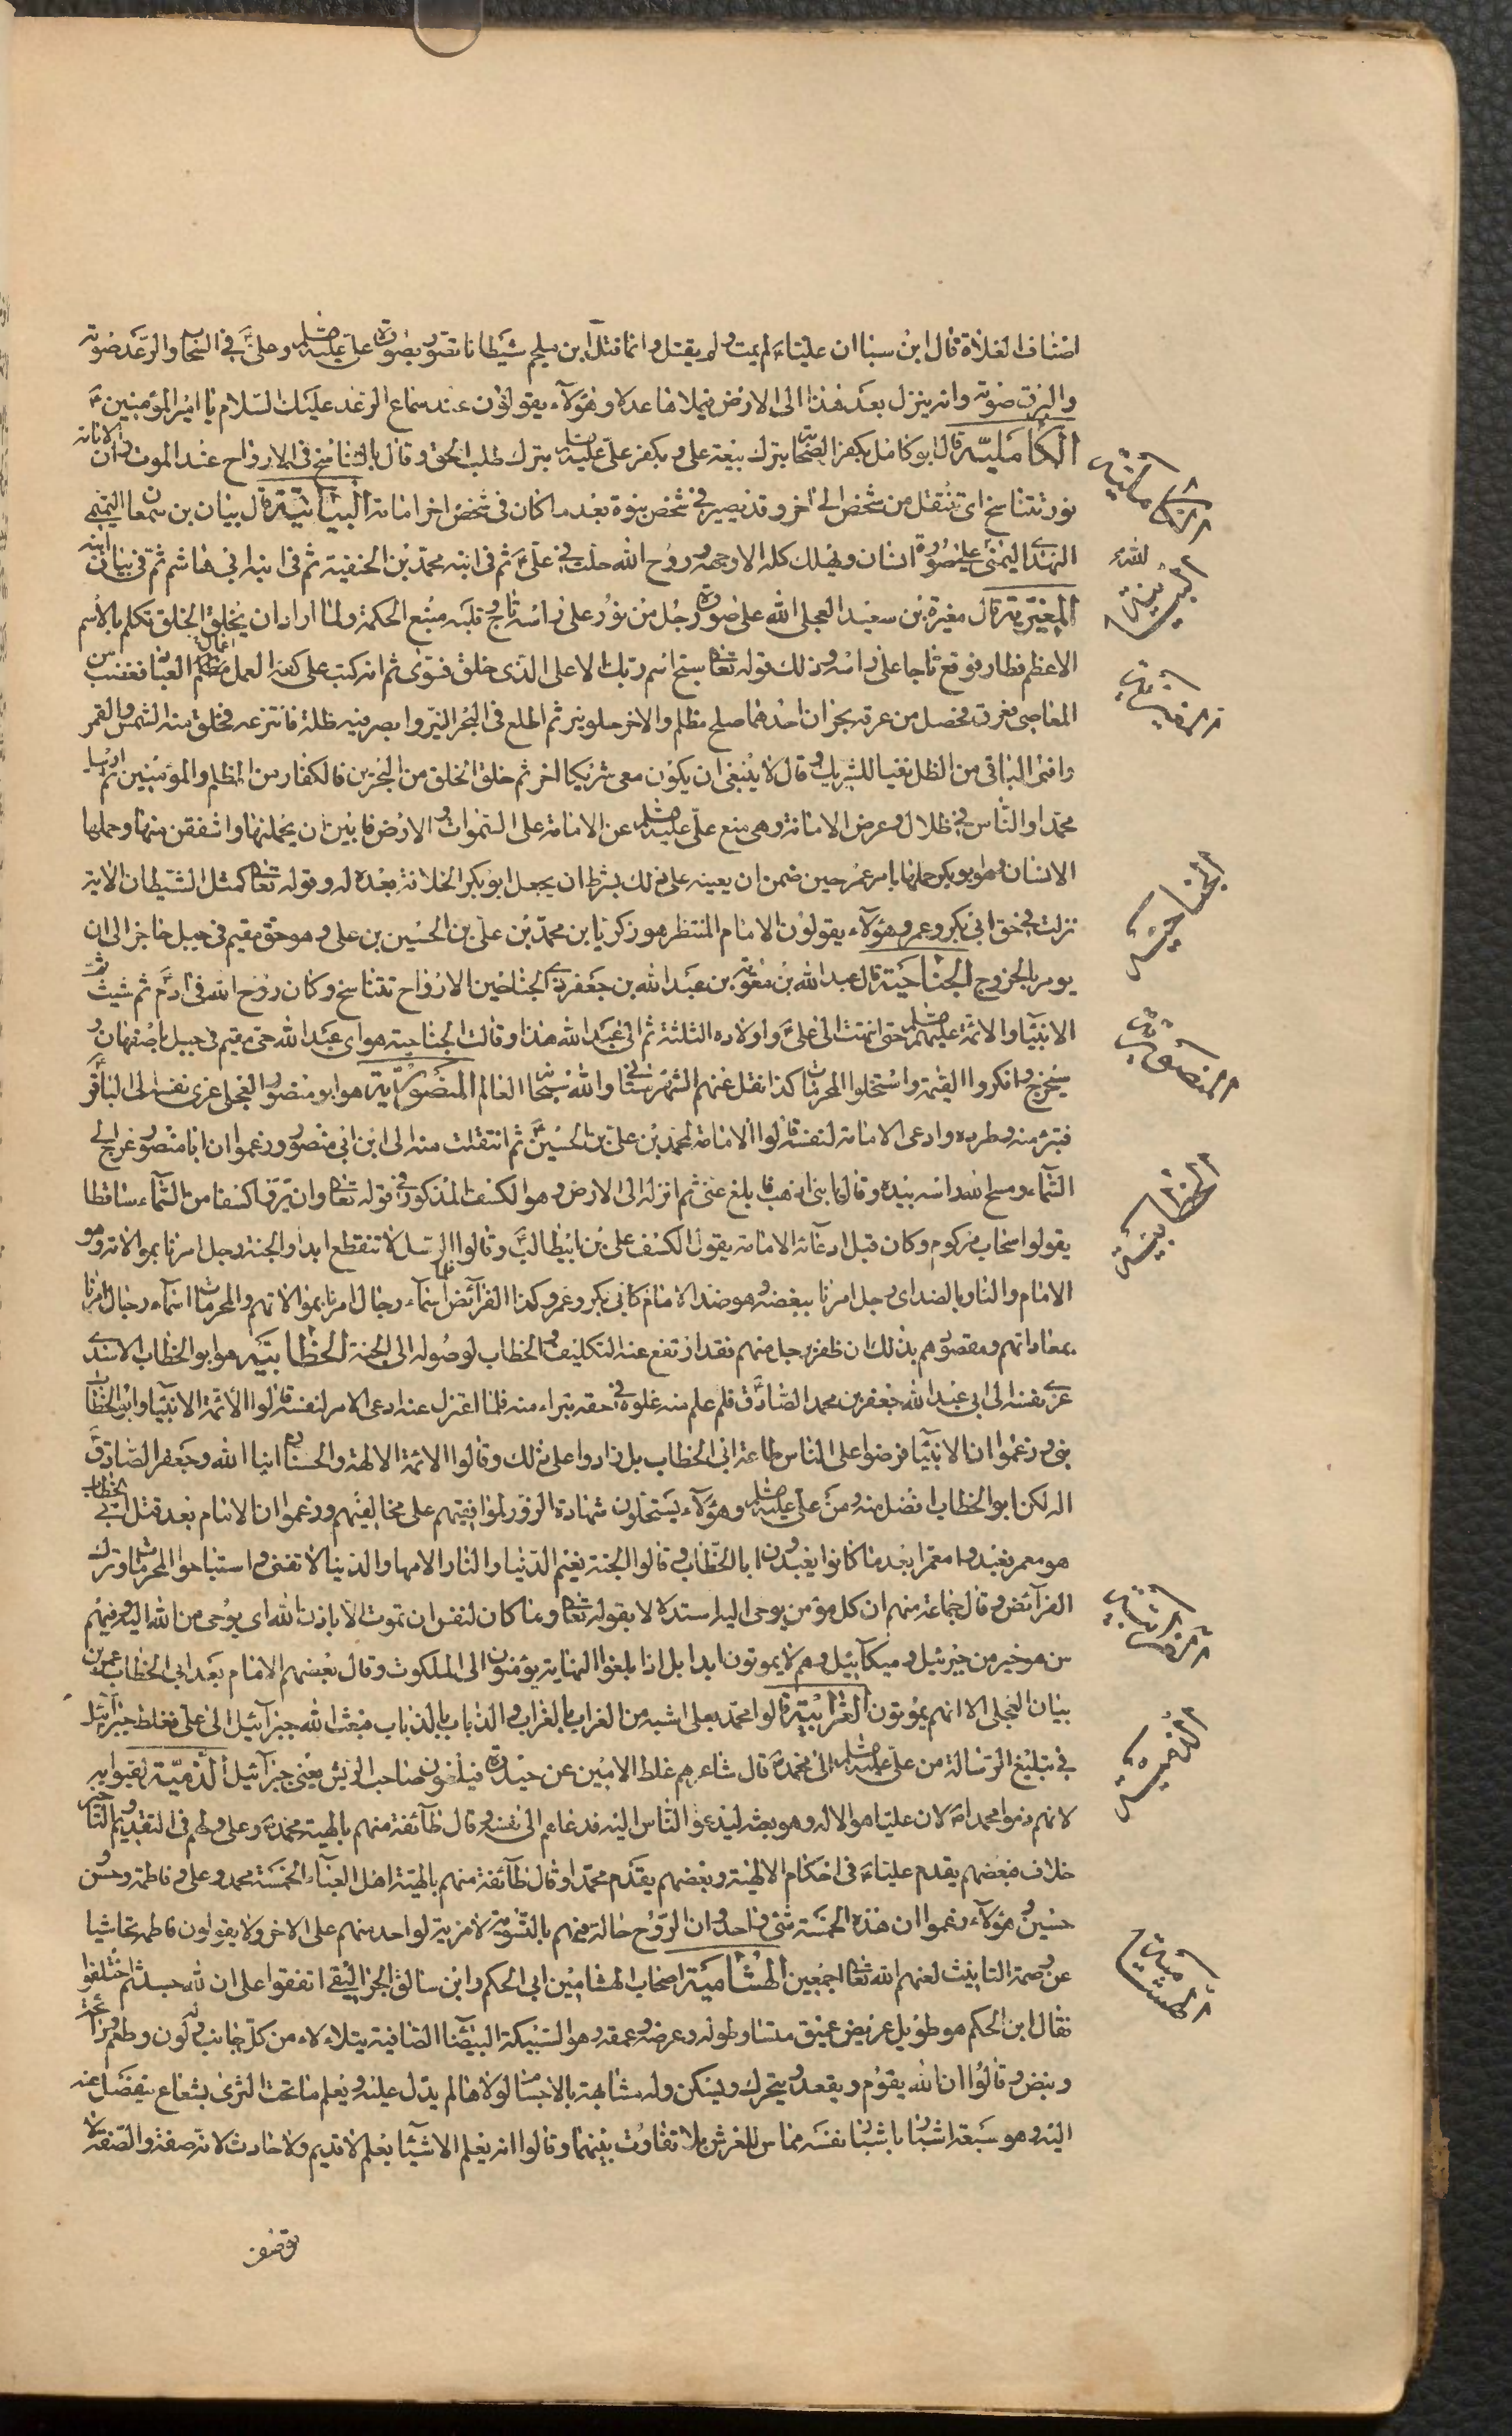 اصناف الغلاة قال ابن سبا ان عليا ع لم يمت ولم يقتل وانما قتل ابن ملجم شيطانا تصور بصورة علي عليه السلم وعلي ع في السحاب والرعد صوته
والبرق صوته وانه ينزل بعد هذا الى الارض فيملاها عدلا وهؤلاء يقولون عند سماع الرعد عليك السلام يا امير المؤمنين ع
الكاملية قال ابو كامل بكفر الصحابة بترك بيعة علي وبكفر علي عليه السلم بترك طلب الحق وقال بالتناسخ في الارواح عند الموت وان الامامة
نور تتناسخ اى تنتقل من شخص الى آخر وقد تصير في شخص نبوة بعد ما كان في شخص اخر امامة البيانية قال بيان بن سمعان التميمي
النهدي اليمني على صورة انسان ويهلك كله الا وجهه وروح الله حلت في علي ع ثم في ابنه محمد بن الحنفية ثم في ابنه ابي هاشم ثم في بيان
المغيرية قال مغيرة بن سعيد العجلي الله على صورة رجل من نور على راسه تاج وقلبه منبع الحكمة ولما اراد ان يخلق الخلق تكلم بالاسم
الاعظم فطار فوقع تاجا على راسه وذلك قوله تعالى سبح اسم ربك الاعلى الذى خلق فسوى ثم انه كتب على كفه اعمال العباد فغضب من
المعاصي فعرق فحصل من عرقه بحران احدهما ملح مظلم والاخر حلو نير ثم اطلع في البحر النير وابصر فيه ظله فانتزعه فخلق منه الشمس والقمر
وافنى الباقي من الظل نفيا للشريك وقال لا ينبغي ان يكون معي شريكا اخر ثم خلق الخلق من البحرين فالكفار من المظلم والمؤمنين ثم ارسل
محمدا والناس في ظلال وعرض الامانة وهي منع علي عليه السلم عن الامامة على السموات والارض فابين ان يحملنها واشفقن منها وحملها
الانسان وهو ابو بكر حملها بامر عمر حين ضمن ان يعينه على ذلك بشرط ان يجعل ابو بكر الخلافة بعده له وقوله تعالى كمثل الشيطان الاية
نزلت في حق ابي بكر وعمر وهؤلاء يقولون الامام المنتظر هو زكريا بن محمد بن علي بن الحسين بن علي وهو حي مقيم في جبل حاجز الى ان
يومر بالخروج الجناحية قال عبد الله بن معوية بن عبد الله بن جعفر ذي الجناحين الارواح تتناسخ وكان روح الله في آدم ثم شيث ثم
الانبيا والائمة عليهم السلم حتى انتهت الى علي ع واولاده الثلثة ثم الى عبد الله هذا وقالت الجناحية هو اى عبد الله حي مقيم في جبل باصفهان و
سيخرج وانكروا القيمة واستحلوا المحرمات كذا نقل عنهم الشهرستاني والله سبحانه العالم المنصورية هو ابو منصور العجلي عزى نفسه الى الباقر
فتبرئ منه وطرده وادعى الامامة لنفسه قالوا الامامة لمحمد بن علي بن الحسين ع ثم انتقلت منه الى ابن ابي منصور وزعموا ان ابا منصور عرج الى
السماء ومسح الله راسه بيده وقال يا بني اذهب فبلغ عني ثم انزله الى الارض وهو الكسف المذكور في قوله تعالى وان يروا كسفا من السماء ساقطا
يقولوا سحاب مركوم وكان قبل ادعائه الامامة يقول الكسف علي بن ابيطالب ع وقالوا الرسل لا تنقطع ابدا والجنة رجل امرنا بموالاته وهو
الامام والنار بالضد اى رجل امرنا ببغضه وهو ضد الامام كابي بكر وعمر وكذا الفرائض اسماء رجال امرنا بموالاتهم والمحرمات اسماء رجال امرنا
بمعاداتهم ومقصودهم بذلك ان ظفر برجل منهم فقد ارتفع عنه التكليف والخطاب لوصوله الى الجنة الخطابية هو ابو الخطاب الاسدي
عزى نفسه الى ابي عبد الله جعفر بن محمد الصادق فلم علم منه غلوه في حقه تبراء منه فلما اعتزل عنه ادعى الامر لنفسه قالوا الائمة الانبيا وابو الخطاب
نبي وزعموا ان الانبيا فرضوا على الناس طاعة ابي الخطاب بل زادوا على ذلك وقالوا الائمة الالهة والحسنان ابنا الله وجعفر الصادق
اله لكن ابو الخطاب افضل منه ومن علي عليه السلم وهؤلاء يستحلون شهادة الزور لموافقيهم على مخالفيهم وزعموا ان الامام بعد قتل ابي الخطاب
هو معمر فعبدوا معمرا بعد ما كانوا يعبدون ابا الخطاب وقالوا الجنة نعيم الدنيا والنار الامها والدنيا لا تفنى واستباحوا المحرمات وترك
الفرائض وقال جماعة منهم ان كل مؤمن يوحى اليه استدلالا بقوله تعالى وما كان لنفس ان تموت الا باذن الله اى بوحى من الله اليه وفيهم
من هو خير من جبرئيل وميكائيل وهم لا يموتون ابدا بل اذا بلغوا النهاية يرفعون الى الملكوت وقال بعضهم الامام بعد ابي الخطاب عمر بن
بيان العجلي الا انهم يموتون الغرابية قالوا محمد بعلي اشبه من الغراب بالغراب والذباب بالذباب فبعث الله جبرائيل الى علي فغلط جبرائيل
في تبليغ الرسالة من علي عليه السلم الى محمد ص قال شاعرهم غلط الامين عن حيدره فيلعنون صاحب الريش يعني جبرائيل الذمية لقبوا به
لانهم ذموا محمدا ص لان عليا هو الاله وهو بعثه ليدعو الناس اليه فدعاهم الى نفسه وقال طائفة منهم بالهية محمد ص وعلي ولهم في التقديم والتاخير
خلاف فبعضهم يقدم عليا ع في احكام الالهية وبعضهم يقدم محمدا وقال طائفة منهم بالهية اهل العباء الخمسة محمد وعلي وفاطمة وحسن
حسين وهؤلاء زعموا ان هذه الخمسة شئ واحد وان الروح حالة فيهم بالتسوية لا مزية لواحد منهم على الاخر ولا يقولون فاطمة تحاشيا
عن وصمة التانيث لعنهم الله تعالى اجمعين الهشامية اصحاب الهشامين ابن الحكم وابن سالم الجواليقي اتفقوا على ان الله جسد ثم اختلفوا
فقال ابن الحكم هو طويل عريض عميق متساو طوله وعرضه وعمقه وهو كالسبيكة البيضا الصافية يتلاءلاء من كل جانب وله لون وطعم ورائحة
ونبض وقالوا ان الله يقوم ويقعد ويتحرك ويسكن وله مشابهة بالاجسام لولاها لم يدل عليه ويعلم ما تحت الثرى بشعاع ينفصل عنه
اليه وهو سبعة اشبار باشبار نفسه مماس للعرش بلا تفاوت بينهما وقالوا انه يعلم الاشيا بعلم لا قديم ولا حادث لانه صفة والصفة لا
توصف
الكاملية
البيانية
المغيرية
الجناحية
المنصورية
الخطابية
الغرابية
الذمية
الهشامية